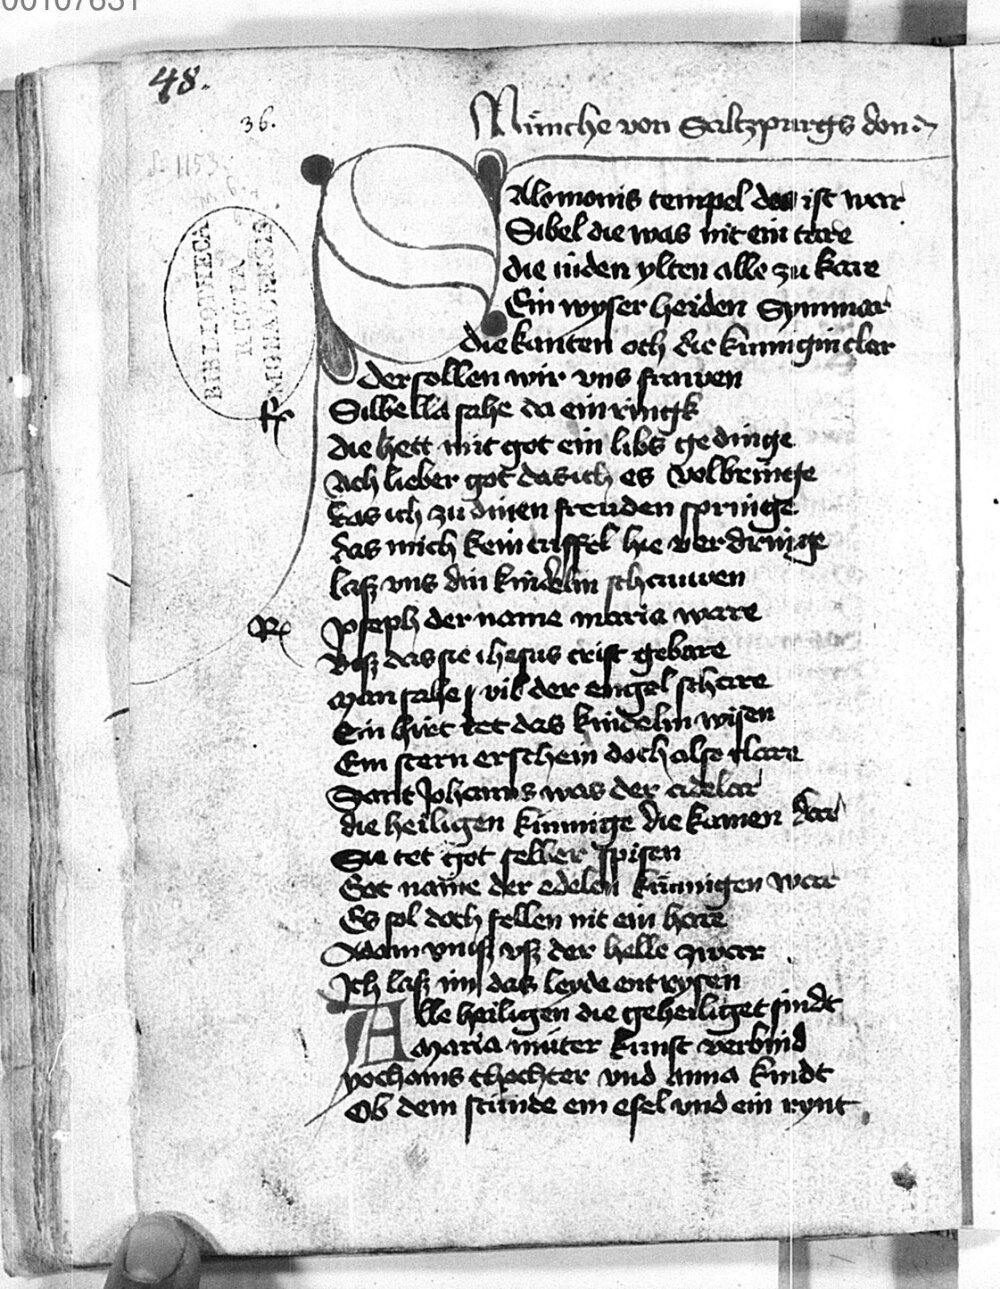 00107631
48.
36.
BIBLIOTHECA
REGIA
MONACENSIS
Münche von Saltzpurgs don
Salomonis tempel das ist war
Sibel die was nit ein tore
die iuden ylten alle zu kare
Ein wyser heiden Symmar
die kanten och die kunnigin clar
der sollen wir vns frawen
Sibella sahe da ein ringk
die hett mit got ein libs gedinge
Ach lieber got das ich es volbringe
das ich zu dinen freuden springe
das mich kein tuffel hie verdringe
laß vns din kindelin schauwen
Joseph der name maria ware
biß das sie ihesus crist gebare
Man sahe vil der engel schare
Ein hirt tet das kindelin wisen
Ein stern erschein doch also clare
Sant Johanns was der adelar
die heiligen kunnige die kamen dar
Sie tet got selber spisen
Got name der edelen kunnigen war
Es sol doch fellen nit ein hare
Adam vnß vß der helle zwar
Ich laß im das leyde entrysen
Alle heiligen die geheiliget sindt
Maria muter kunst verbind
yochams thochter vnd anna kindt
Ob dem stunde ein esel vnd ein rynt